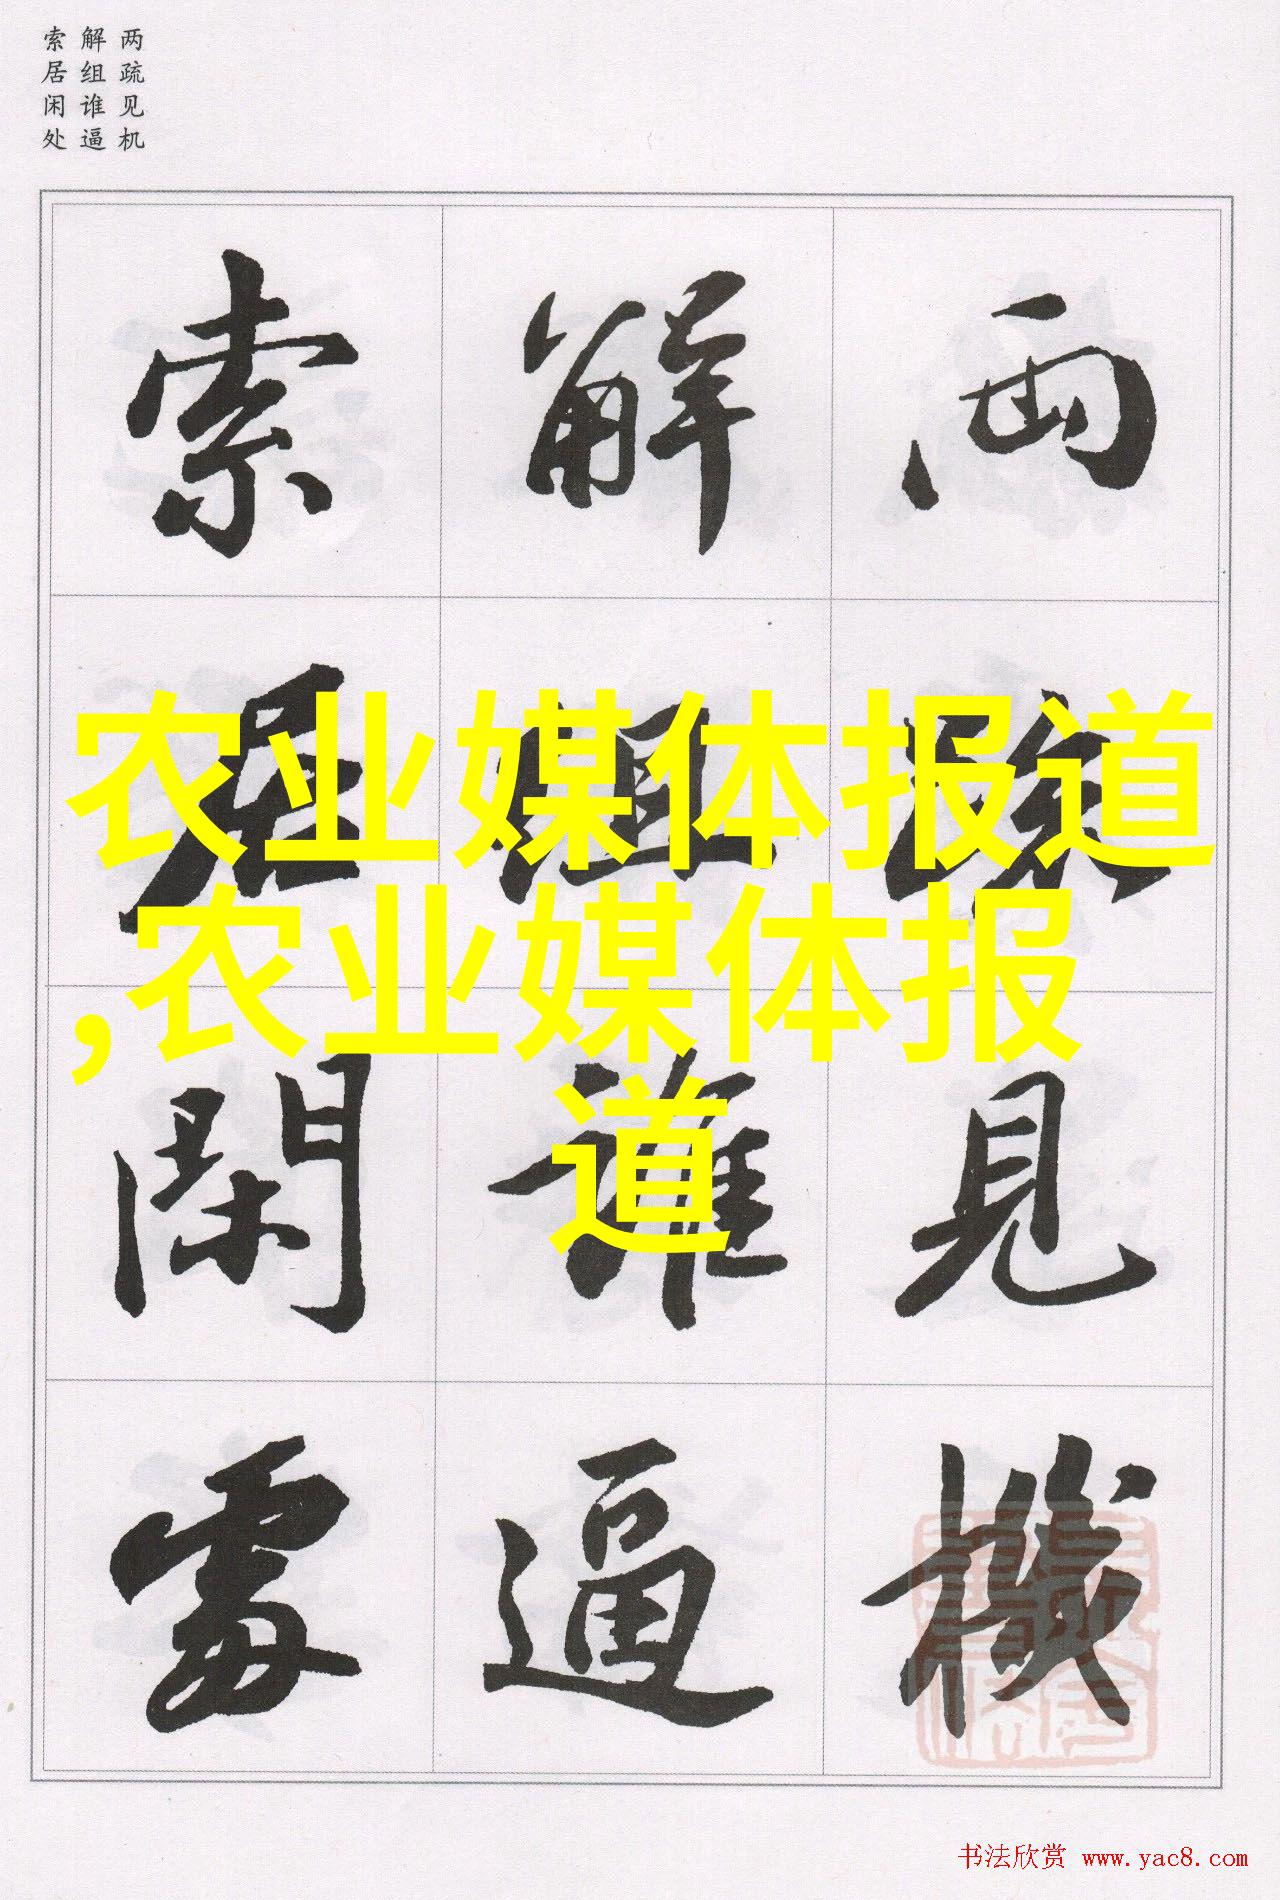 两疏见机
解组谁逼
索居闲处
兩疏見機
解組誰逼
索居閑處
农业媒体报道
,农业媒体报
道
书法欣赏 www.yac8.com